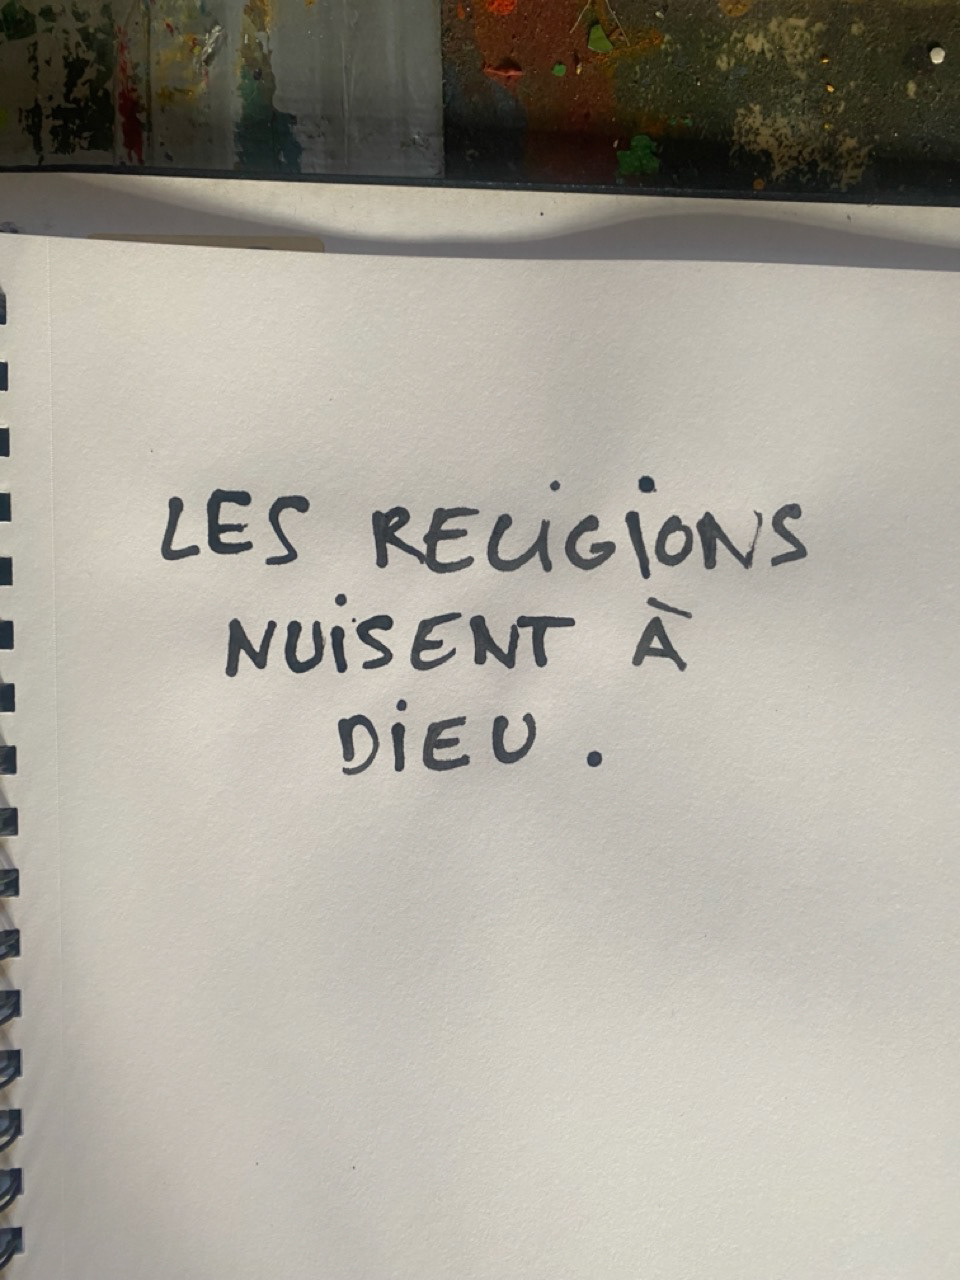 LES RELIGIONS
NUISENT À
DIEU.